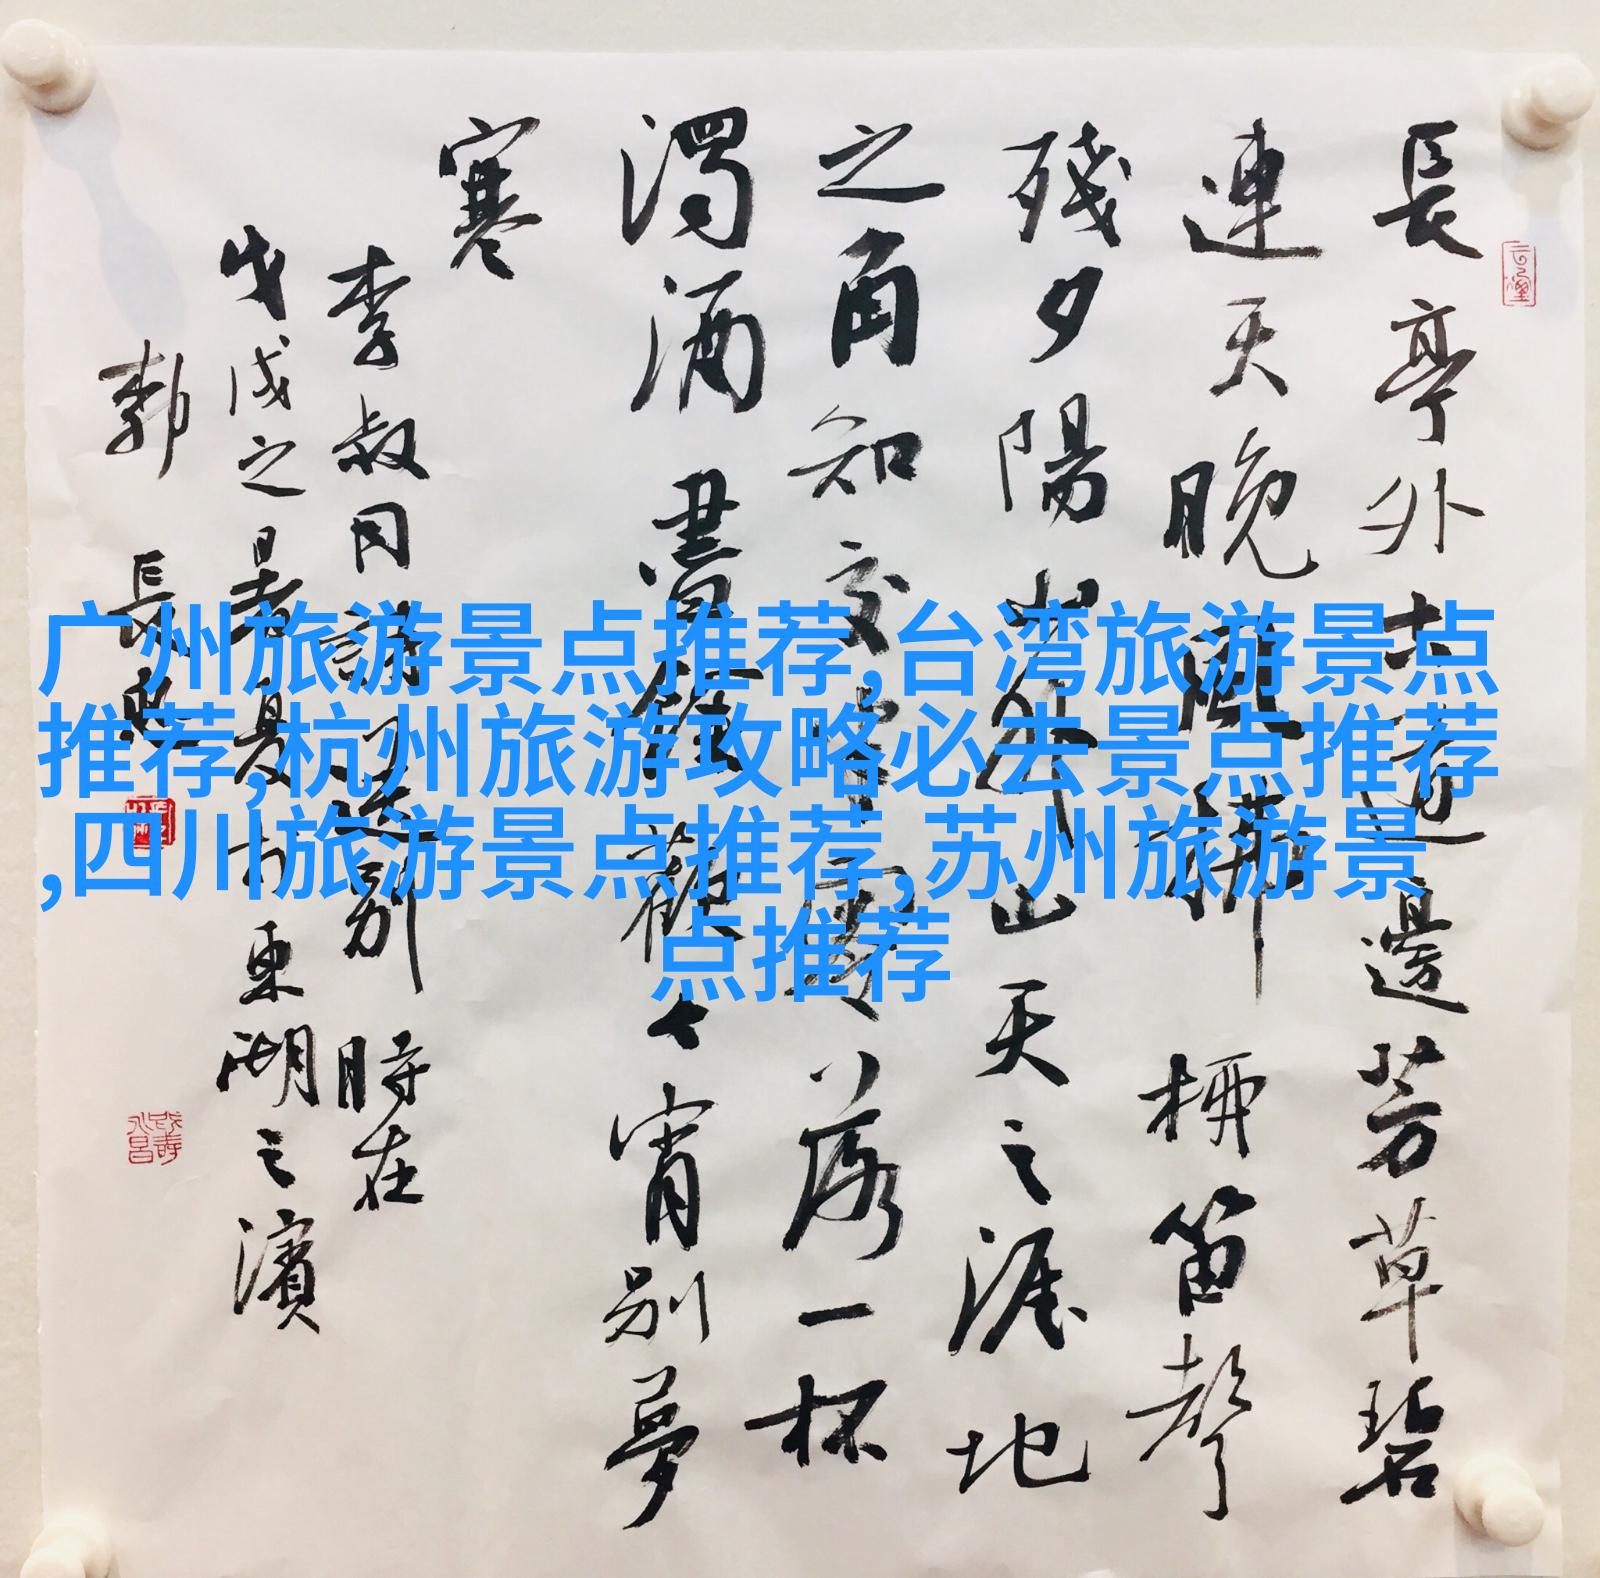 長亭外古道邊芳草碧
連天晚風拂柳笛聲
殘夕陽山外山天之涯地
之角知交半零落一杯
濁酒盡餘歡今宵別夢
寒
李叔同詩送別 時在
戊戌之暑夏於東湖之濱
郭 長
广州旅游景点推荐,台湾旅游景点
推荐,杭州旅游攻略必去景点推荐
,四川旅游景点推荐,苏州旅游景
点推荐